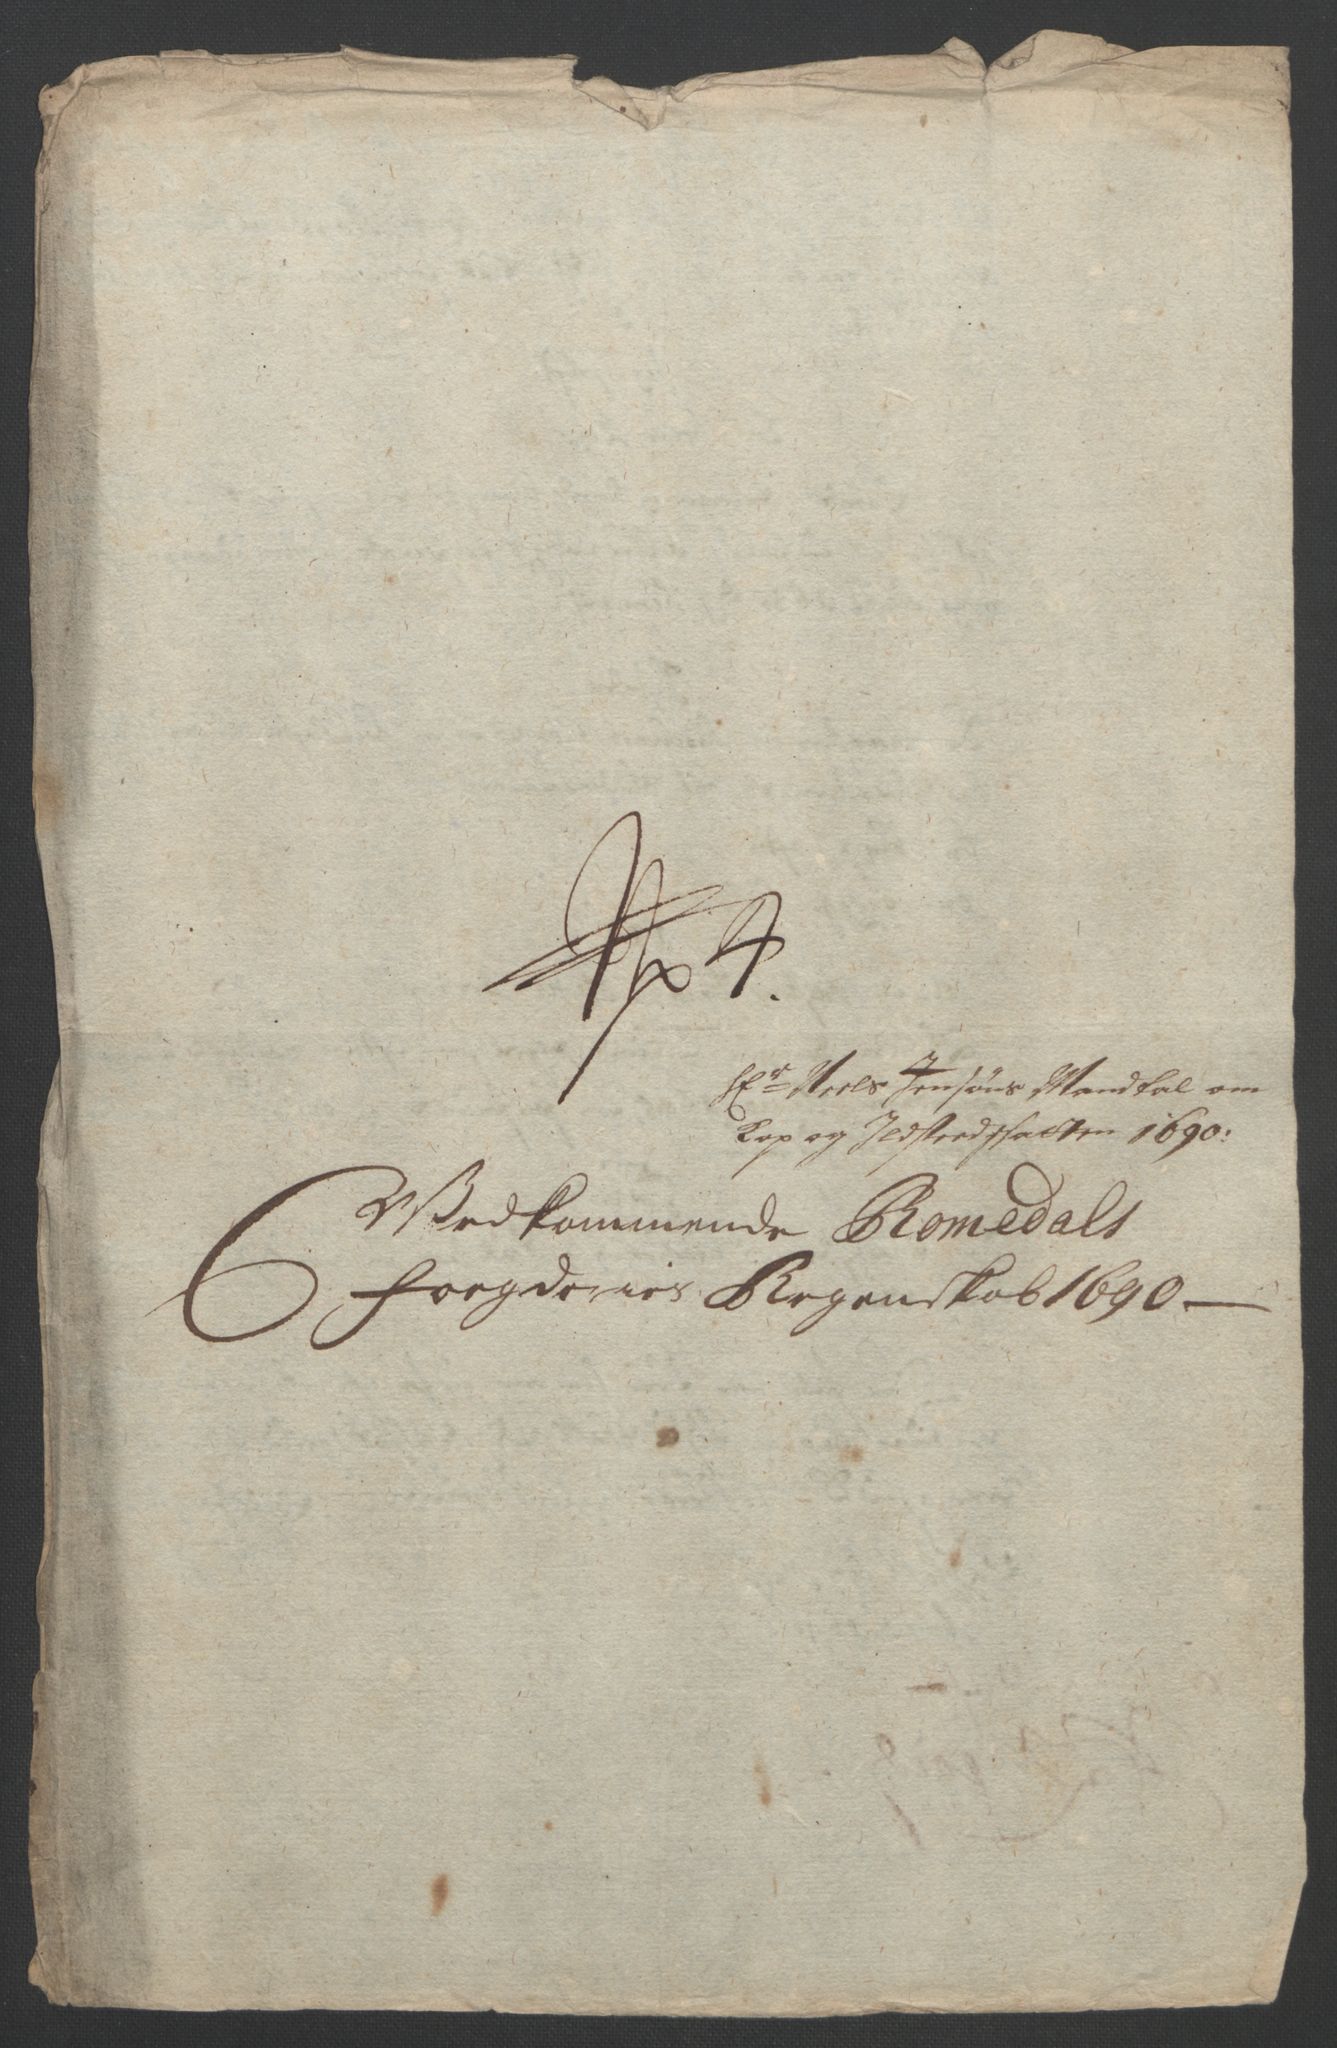 No 4.
Hr Neels Jensøns Mandtal om
Kop og Ildstedskatten 1690:
Vedkommende Romsdals
Foegderies Regenskab 1690